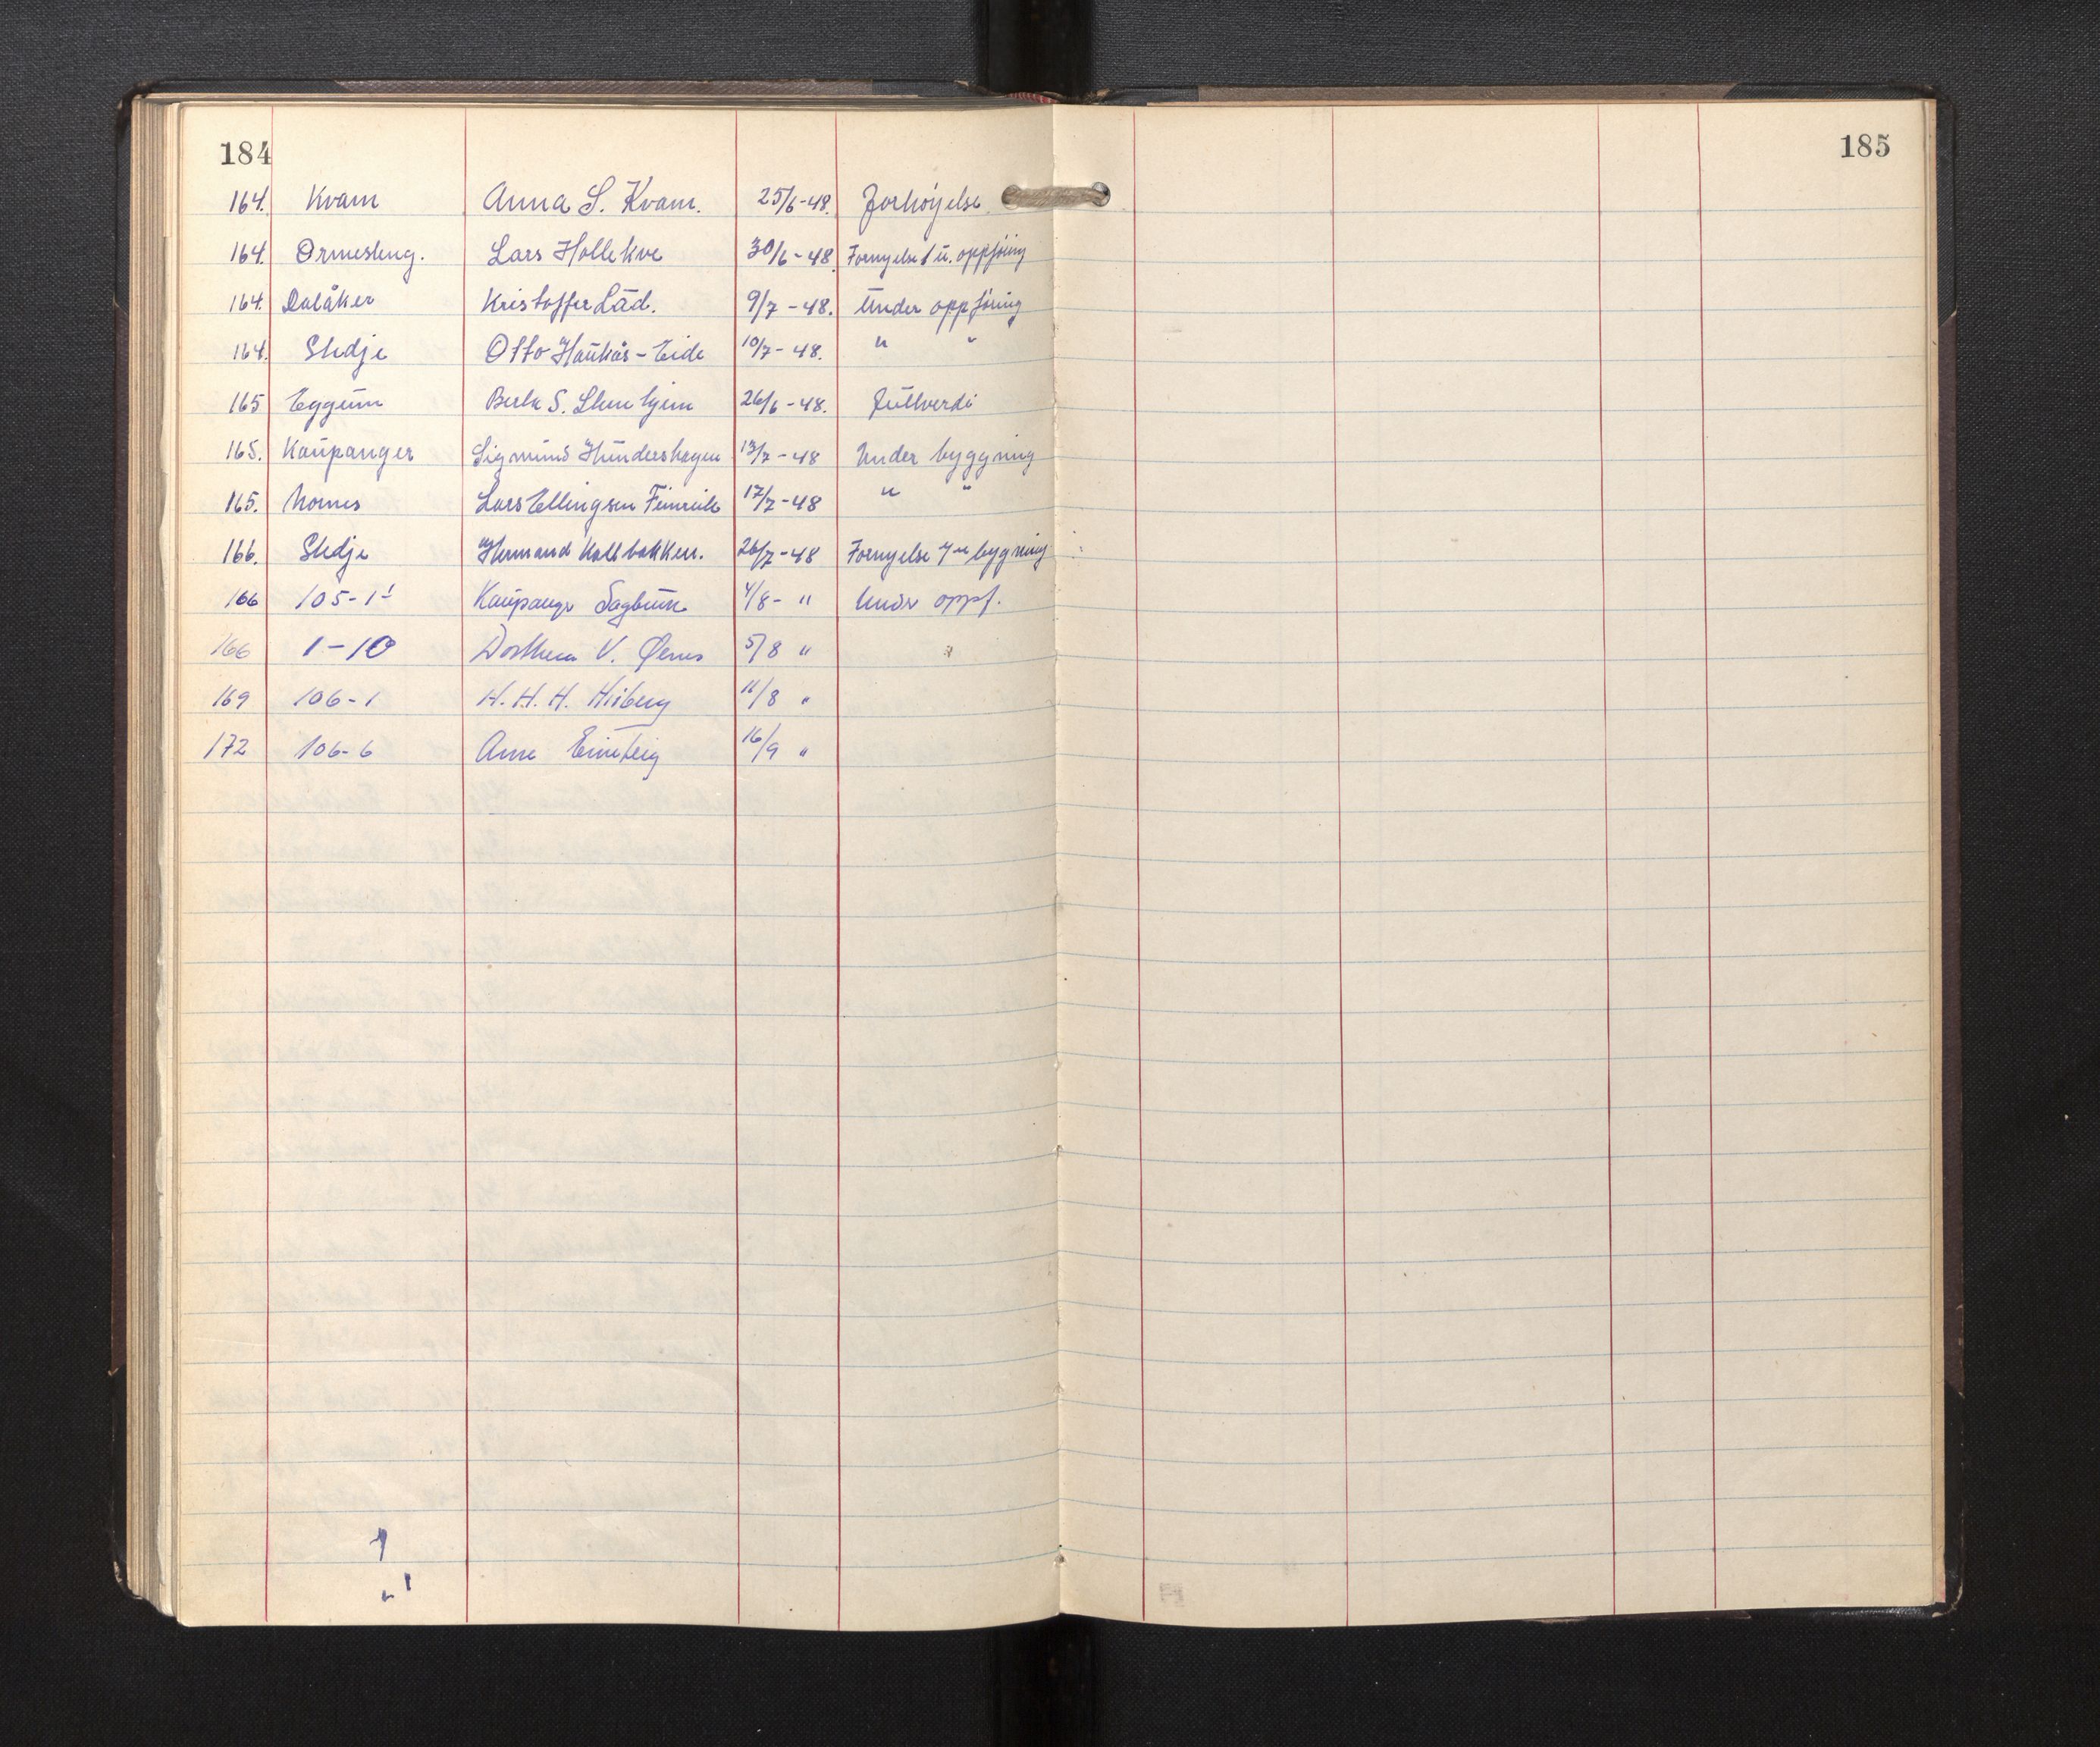 184
185
164. Kvam Anna S. Kvam. 25/6-48. Forhöyelse
164. Ormesteng. Lars Hollekve 30/6-48. Fornyelse / u. oppföring
164. Dalåker Kristoffer Låd. 9/7-48. Under oppföring
164. Stedje Otto Haukås-Eide 10/7-48. " "
165 Eggum S. 26/6-48. Fullverdi
165. Kaupanger Sigmund Hundershagen 13/7-48 Under byggning
165. Nornes Lars Ellingsen 17/7-48 " "
166. Stedje Hermand 26/7-48 Fornyelse bygning
166 105-1 Kaupanger Sagbruk 4/8- " Under oppf.
166 1-10 Dorthea V. Øenes 5/8 " "
169 106-1 H. H. H. Hiiberg 11/8 "
172 106-6 16/9 "